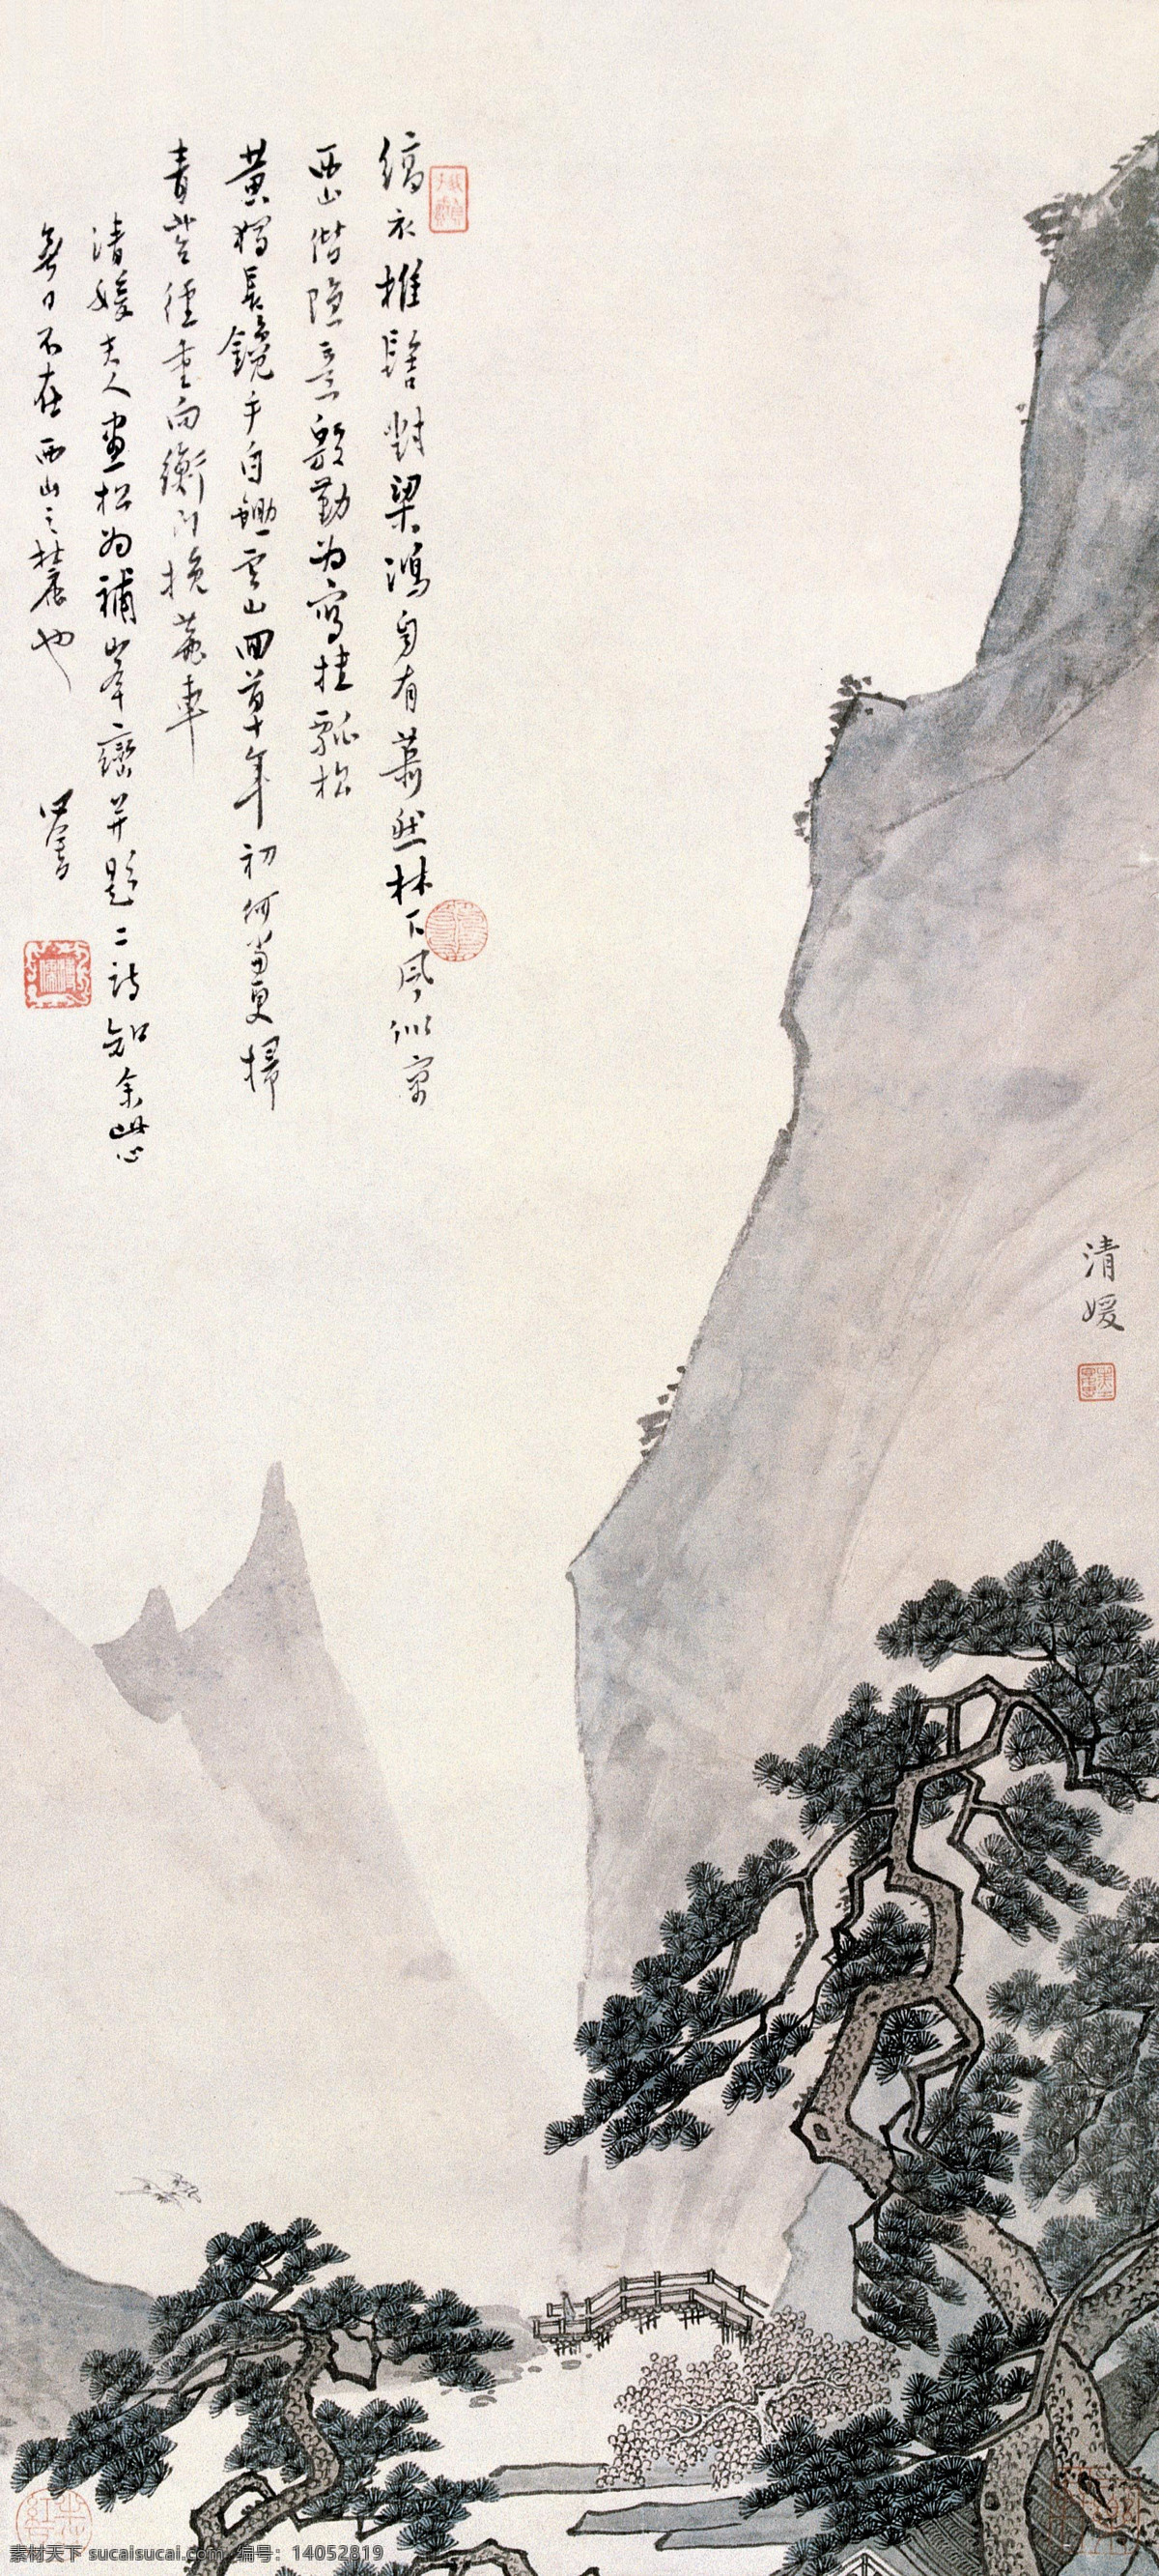 縞衣椎髻對梁鴻自有蕭然林下風似
西山偕隱意殷勤為寫挂瓢松
黃獨長鑱手自鋤雲山回首十年初何當更掃
青苔徑重向衡門挽鹿車
清媛夫人畫松為補峰巒并題二詩知余此心
無日不在西山之麓也
心畬
溥儒
清媛
素材天下 sucaisucai.com 编号：14052819